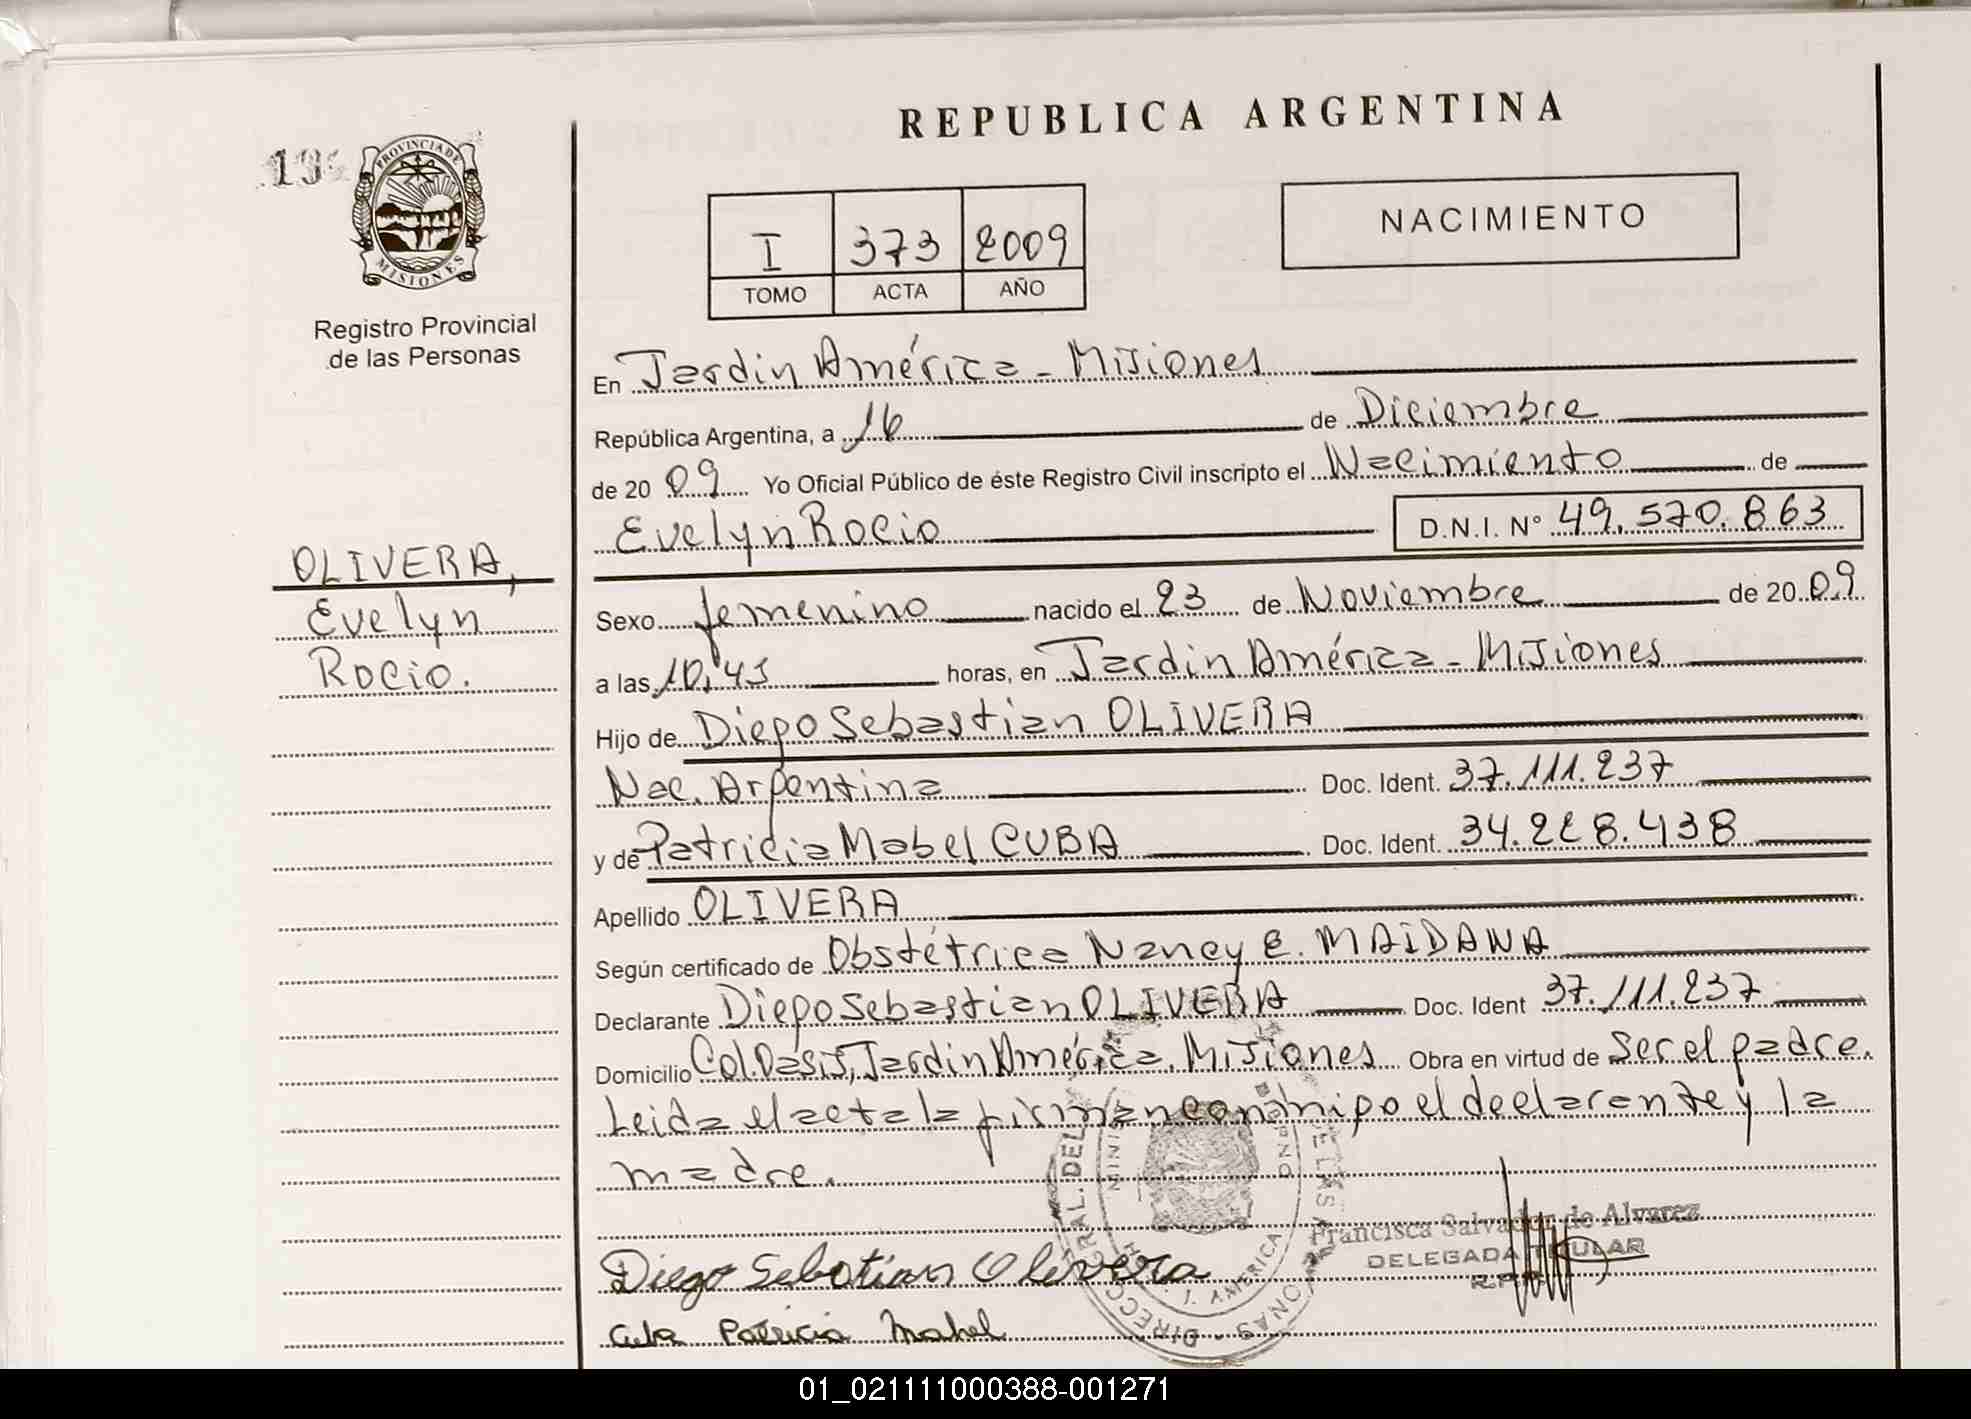 REPUBLICA ARGENTINA
PROVINCIA DE
MISIONES
Registro Provincial
de las Personas
I 373 2009
TOMO ACTA AÑO
NACIMIENTO
En Jardin América - Misiones
República Argentina, a 16 de Diciembre
de 20 09 Yo Oficial Público de éste Registro Civil inscripto el Nacimiento de
Evelyn Rocio D.N.I. N° 49.570.863
OLIVERA,
Evelyn
Rocio.
Sexo femenino nacido el 23 de Noviembre de 20 09
a las 10,45 horas, en Jardin América - Misiones
Hijo de Diego Sebastian OLIVERA
Nac. Argentina Doc. Ident. 37.111.237
y de Patricia Mabel CUBA Doc. Ident. 34.228.438
Apellido OLIVERA
Según certificado de Obstétrica Nancy E. MAIDANA
Declarante Diego Sebastian OLIVERA Doc. Ident 37.111.237
Domicilio Col. Oasis, Jardin América, Misiones Obra en virtud de ser el padre.
Leida el acta la firman conmigo el declarante y la
madre.
Francisca Salvador de Alvarez
DELEGADA TITULAR
Diego Sebastian Olivera
Cuba Patricia Mabel
01_021111000388-001271